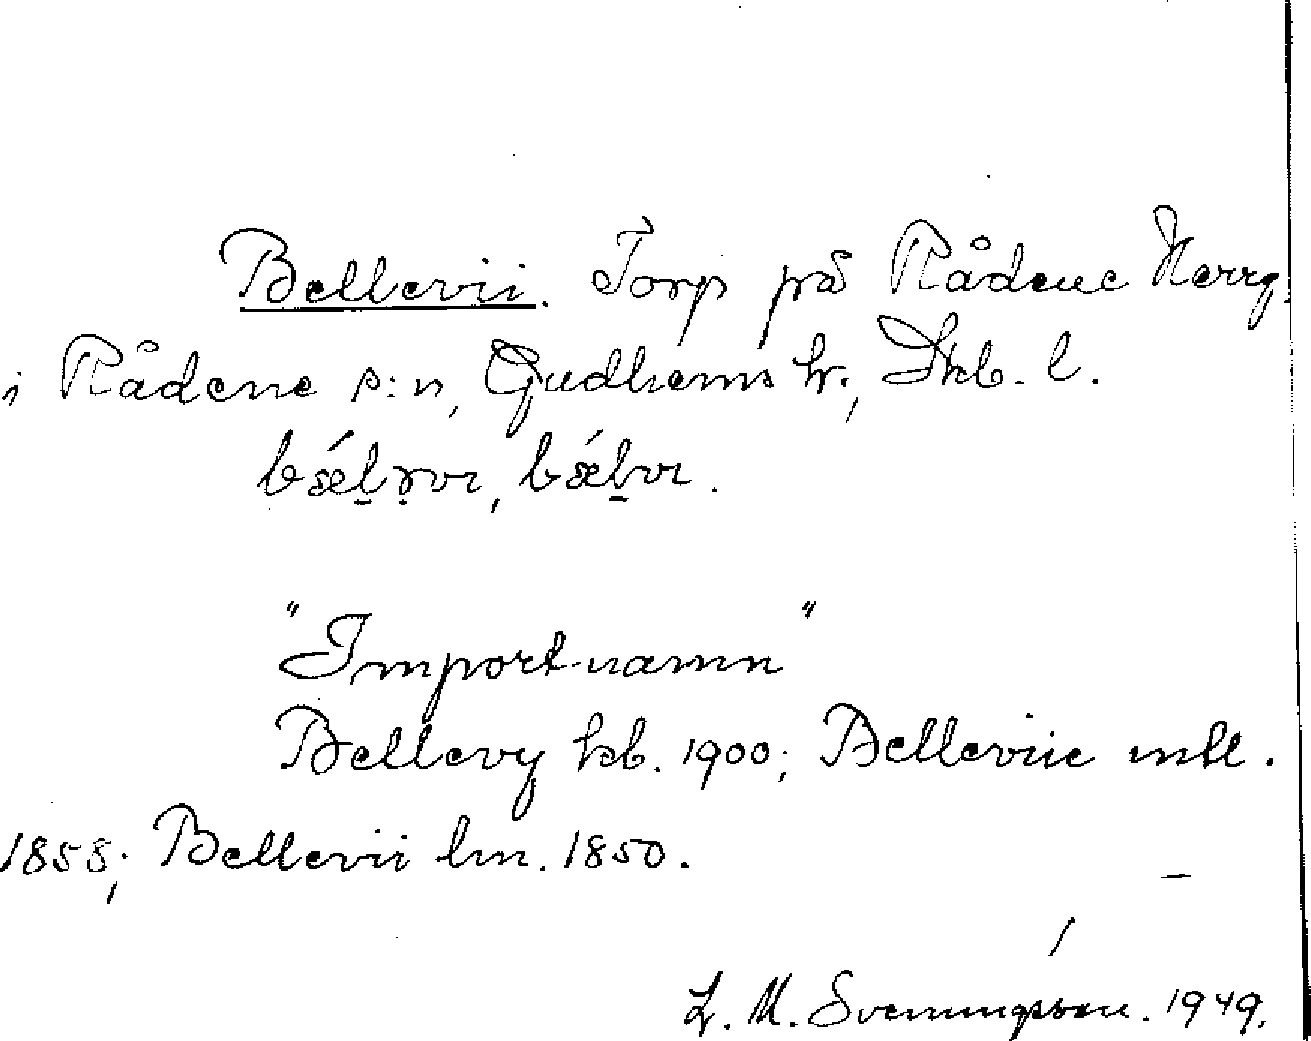 Bellevii. Torp på Rådene Herrg.
i Rådene s:n, Gudhems hr., Skb. l.
"Import-namn"
Bellevy kb. 1900; Belleviie mtl.
1858; Bellevii lm. 1850.
L. M. Svenungsson. 1949.